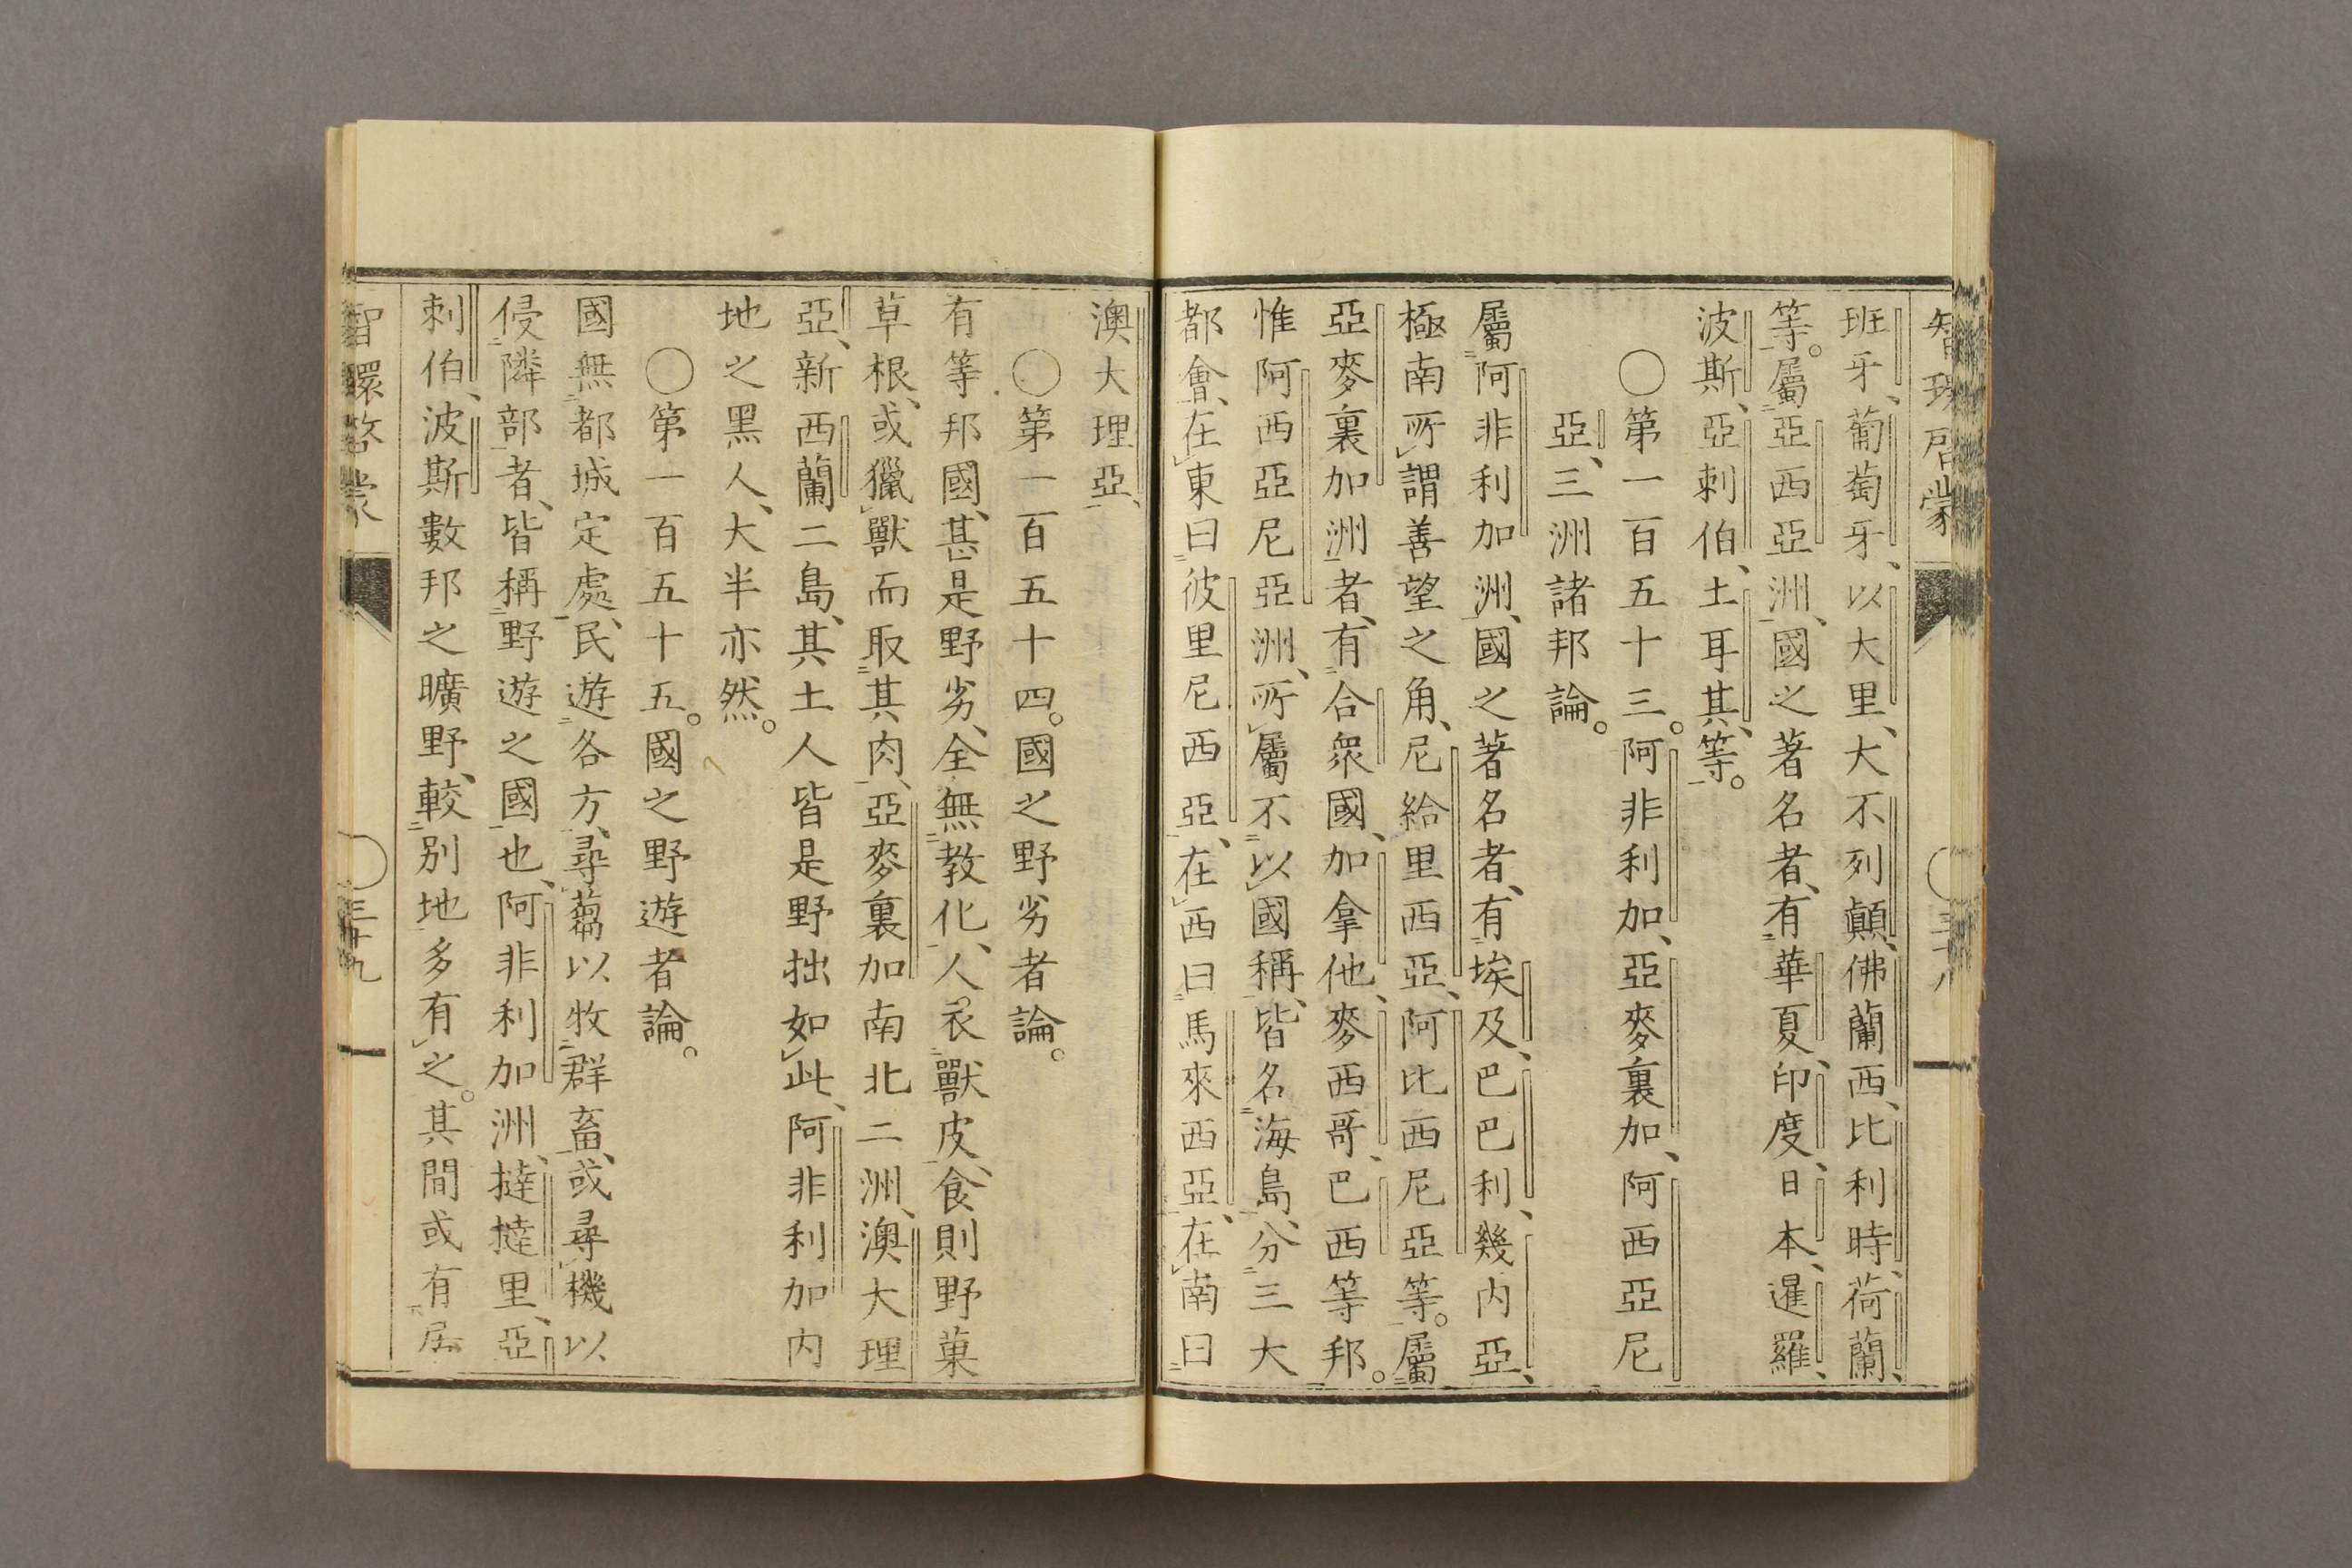 智環啓蒙
三十八
班牙、葡萄牙、以大里、大不列顛、佛蘭西、比利時、荷蘭、
等。屬亞西亞洲、國之著名者、有華夏、印度、日本、暹羅、
波斯、亞剌伯、土耳其、等。
〇第一百五十三。阿非利加、亞麥裏加、阿西亞尼
亞、三洲諸邦論。
屬阿非利加洲、國之著名者、有埃及、巴巴利、幾内亞、
極南所謂善望之角、尼給里西亞、阿比西尼亞等。屬
亞麥裏加洲者、有合衆國、加拿他、麥西哥、巴西等邦。
惟阿西亞尼亞洲、所屬不以國稱、皆名海島、分三大
都會、在東曰彼里尼西亞、在西曰馬來西亞、在南曰
澳大理亞、
〇第一百五十四。國之野劣者論。
有等邦國、甚是野劣、全無教化、人衣獸皮、食則野菓
草根、或獵獸而取其肉、亞麥裏加南北二洲、澳大理
亞、新西蘭二島、其土人皆是野拙如此、阿非利加内
地之黑人、大半亦然。
〇第一百五十五。國之野遊者論。
國無都城定處、民遊各方、尋蒭以牧群畜、或尋機以
侵隣部者、皆稱野遊之國也、阿非利加洲、撻撻里、亞
剌伯、波斯數邦之曠野、較別地多有之。其間或有居
智環啓蒙
三十九